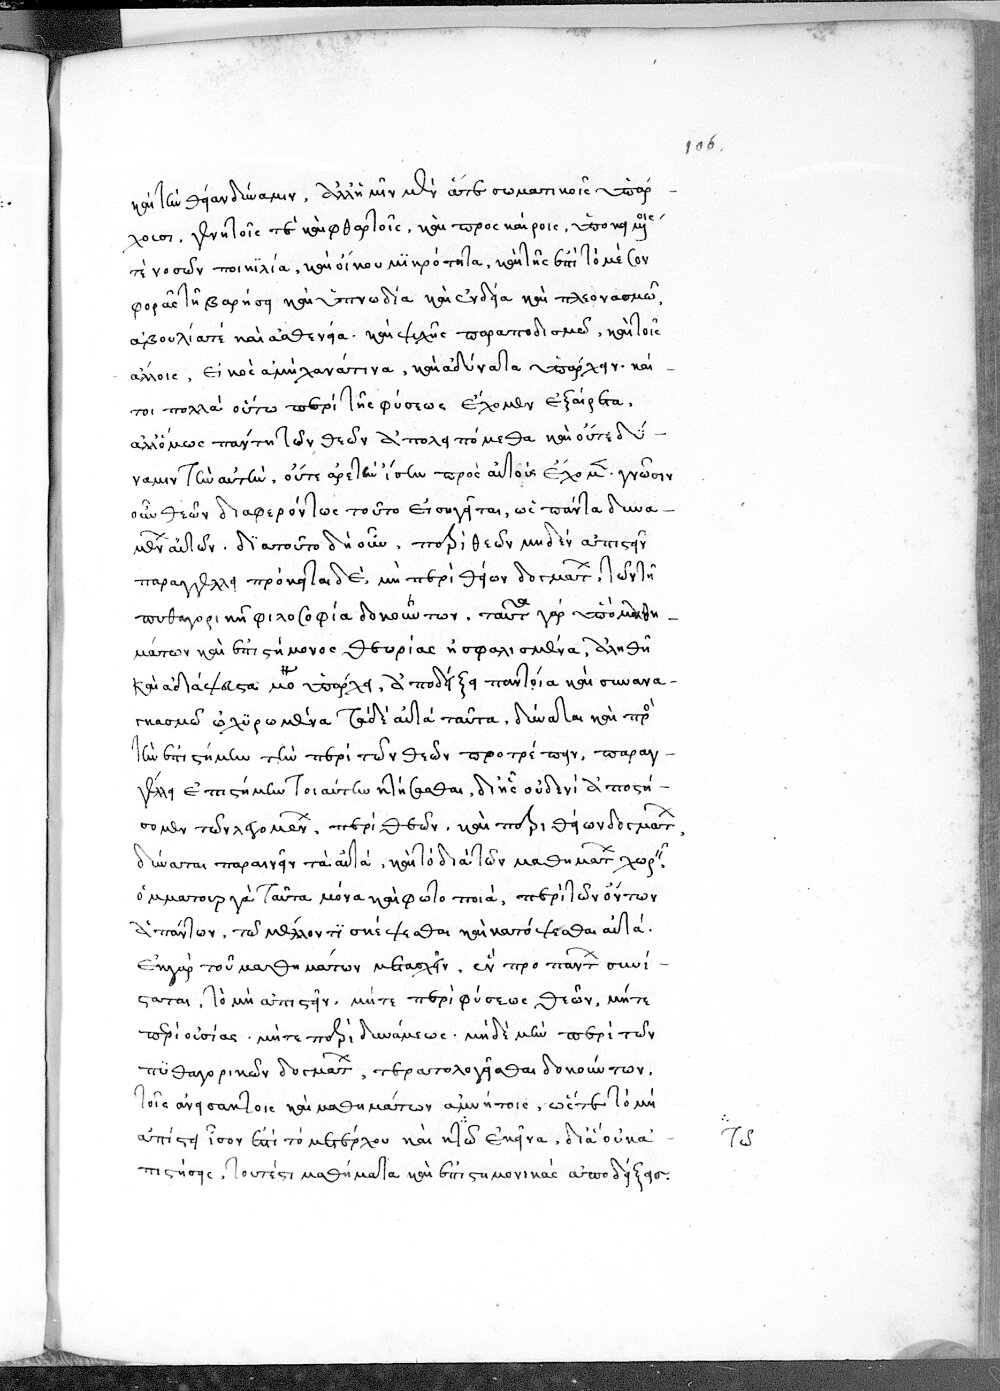 106.
καὶ τὴν θείαν δύναμιν. ἀλλ' ἡμῖν μὲν ἅτε σωματικοῖς ὑπάρ-
χουσι, γενητοῖς τε καὶ φθαρτοῖς, καὶ προσκαίροις, ὑποκειμένοις
τε νόσων ποικιλία, καὶ οἴκου μικρότητα, καὶ τῆς ἐπὶ τὸ μέσον
φορᾶς τῆ βαρήσει καὶ ὑπνωδία καὶ ἐνδεία καὶ πλεονασμῶ,
ἀβουλία τε καὶ ἀσθενεία. καὶ ψυχῆς παραποδισμῶ, καὶ τοῖς
ἄλλοις, εἰκὸς ἀμήχανά τινα, καὶ ἀδύνατα ὑπάρχειν. καί-
τοι πολλὰ οὕτω περὶ τῆς φύσεως ἔχομεν ἐξαίρετα,
ἀλλ' ὅμως πάντη τῶν θεῶν ἀπολειπόμεθα καὶ οὔτε δύ-
ναμιν τὴν αὐτὴν, οὔτε ἀρετὴν ἴσην πρὸς αὐτοὺς ἔχομεν. γνῶσιν
οὖν θεῶν διαφερόντως τοῦτο εἰσηγεῖται, ὡς πάντα δυνα-
μένων αὐτῶν. διατοῦτο δὴ οὖν, περὶ θεῶν μηδὲν ἀπιστεῖν
παραγγέλλει πρόκειται δὲ, μὴ περὶ θείων δογμάτων, τῶν τῆ
πυθαγορικῆ φιλοσοφία δοκούντων. ταῦτα γὰρ ὑπὸ μαθη-
μάτων καὶ ἐπιστήμονος θεωρίας ἠσφαλισμένα, ἀληθῆ
καὶ ἀδιάψευστα μόνα ὑπάρχει, ἀποδείξει παντοία καὶ συνανα-
γκασμῶ ὠχυρωμένα τὰ δὲ αὐτὰ ταῦτα, δύναται καὶ πρὸς
τὴν ἐπιστήμην τὴν περὶ τῶν θεῶν προτρέπειν, παραγ-
γέλλει ἐπιστήμην τοιαύτην κτήσασθαι, δι' ἧς οὐδενὶ ἀπιστή-
σομεν τῶν λεγομένων, περὶ θεῶν. καὶ περὶ θείων δογμάτων,
δύναται παραινεῖν τὰ αὐτὰ, καὶ τὸ διὰ τῶν μαθημάτων χωρεῖν.
ὀμματουργὰ ταῦτα μόνα καὶ φωτοποιὰ, περὶ τῶν ὄντων
ἁπάντων, τῶ μέλλοντι σκέψεσθαι καὶ κατόψεσθαι αὐτά.
ἐκ γὰρ τοῦ μαθημάτων μετασχεῖν, ἓν πρὸ πάντων συνί-
σταται, τὸ μὴ ἀπιστεῖν. μήτε περὶ φύσεως θεῶν, μήτε
περὶ οὐσίας. μήτε περὶ δυνάμεως. μηδὲ μὴν περὶ τῶν
πυθαγορικῶν δογμάτων, τερατολογεῖσθαι δοκούντων,
τοῖς ἀνεισάκτοις καὶ μαθημάτων ἀμυήτοις, ὥστε τὸ μὴ
ἀπίστει ἴσον ἐστὶ τὸ μετέρχου καὶ κτῶ ἐκεῖνα, δι' ἃ οὐκ ἀ-
πιστήσεις, τουτέστι μαθήματα καὶ ἐπιστημονικὰς ἀποδείξεις.